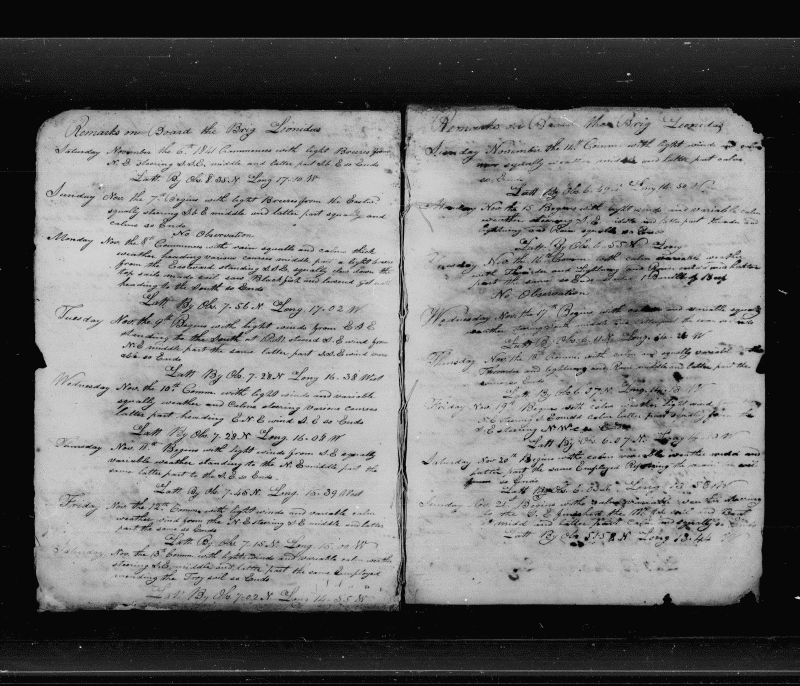 Remarks on Board the Brig Leonidas
Saturday November the 6th 1841 Commences with light Breezes from
N.E stearing S.S.E. middle and latter part S.E so Ends
Latt By Obs 8.35 N Long 17.10 W
Sunday Nov. the 7th Begins with light Breezes from the Easterd
squally stearing S.E middle and latter part squally and
calms so Ends
No Observation
Monday Nov. the 8th Commences with rain squalls and calms thick
weather heading various courses middle part a light breeze
from the Eastward standing S.S.E squally
top sails and saw Blackfish and lowerd got
heading to the South so Ends
Latt By Obs. 7.56 N Long. 17.02 W
Tuesday Nov. the 9th Begins with light winds from E.S.E
standing to the South at P.M. stearing S.E wind from
N.E middle part the same latter part S.S.E wind
so Ends
Latt By Obs 7.28 N Long 16.38 West
Wednesday Nov. the 10th Comm. with light winds and variable
squally weather and Calms stearing various courses
latter part heading E.N.E wind S.E so Ends
Latt By Obs. 7.28 N Long. 16.08 W
Thursday Nov. 11th Begins with light winds from S.E squally
variable weather standing to the N.E middle part the
same latter part to the S.E so Ends
Latt. By Obs 7.46 N Long. 15.39 West
Friday Nov. the 12th Comm. with light winds and variable calm
weather wind from the N.E stearing S.E middle and latter
part the same so Ends
Latt. By Obs 7.15 N Long 15.00 W
Saturday Nov. the 13th Comm. with light winds and variable calm weather
stearing S.E. middle and latter part the same Employed
mending the Try sail so Ends
Latt By Obs 7.02 N Long 14.55 W
Remarks on Board the Brig Leonidas
Sunday November the 14th Comm. with light wind and
squally weather middle and latter part calm
so Ends
Latt By Obs 6.59 Long 14.50 W
Monday Nov the 15 Begins with light winds and variable calm
weather stearing S.E middle and latter part Thunder and
lightning and Rain squalls so Ends
Latt By Obs 6.55 N Long
Tuesday Nov. the 16th Comm. with calm variable weather
with Thunder and Lightning and middle and latter
part the same so Ends 1 Barrell of Beef
No Observation
Wednesday Nov the 17 Begins with calms and variable squally
weather middle and latter part the same
Latt By Obs 6. N Long. 14.26 W
Thursday Nov the 18 Comm. with calm and squally variable
Thunder and lightning and Rain middle and latter part the
same so Ends
Latt By Obs 6.37 N Long W
Friday Nov. 19th Begins with calm weather wind from
N.E stearing S.E middle calm latter part squally from the
S.E stearing N.W so Ends
Latt By Obs 6.07 N Long 14.13 W
Saturday Nov. 20th Begins with calm variable weather middle and
latter part the same Employed Repairing the main sail
so Ends
Latt By Obs 6. N Long 13.58 W
Sunday Nov 21st Begins with calm variable weather stearing
to the S.E
midd and latter part calm and squally so Ends
Latt By Obs 5.58 N Long 13.44 W